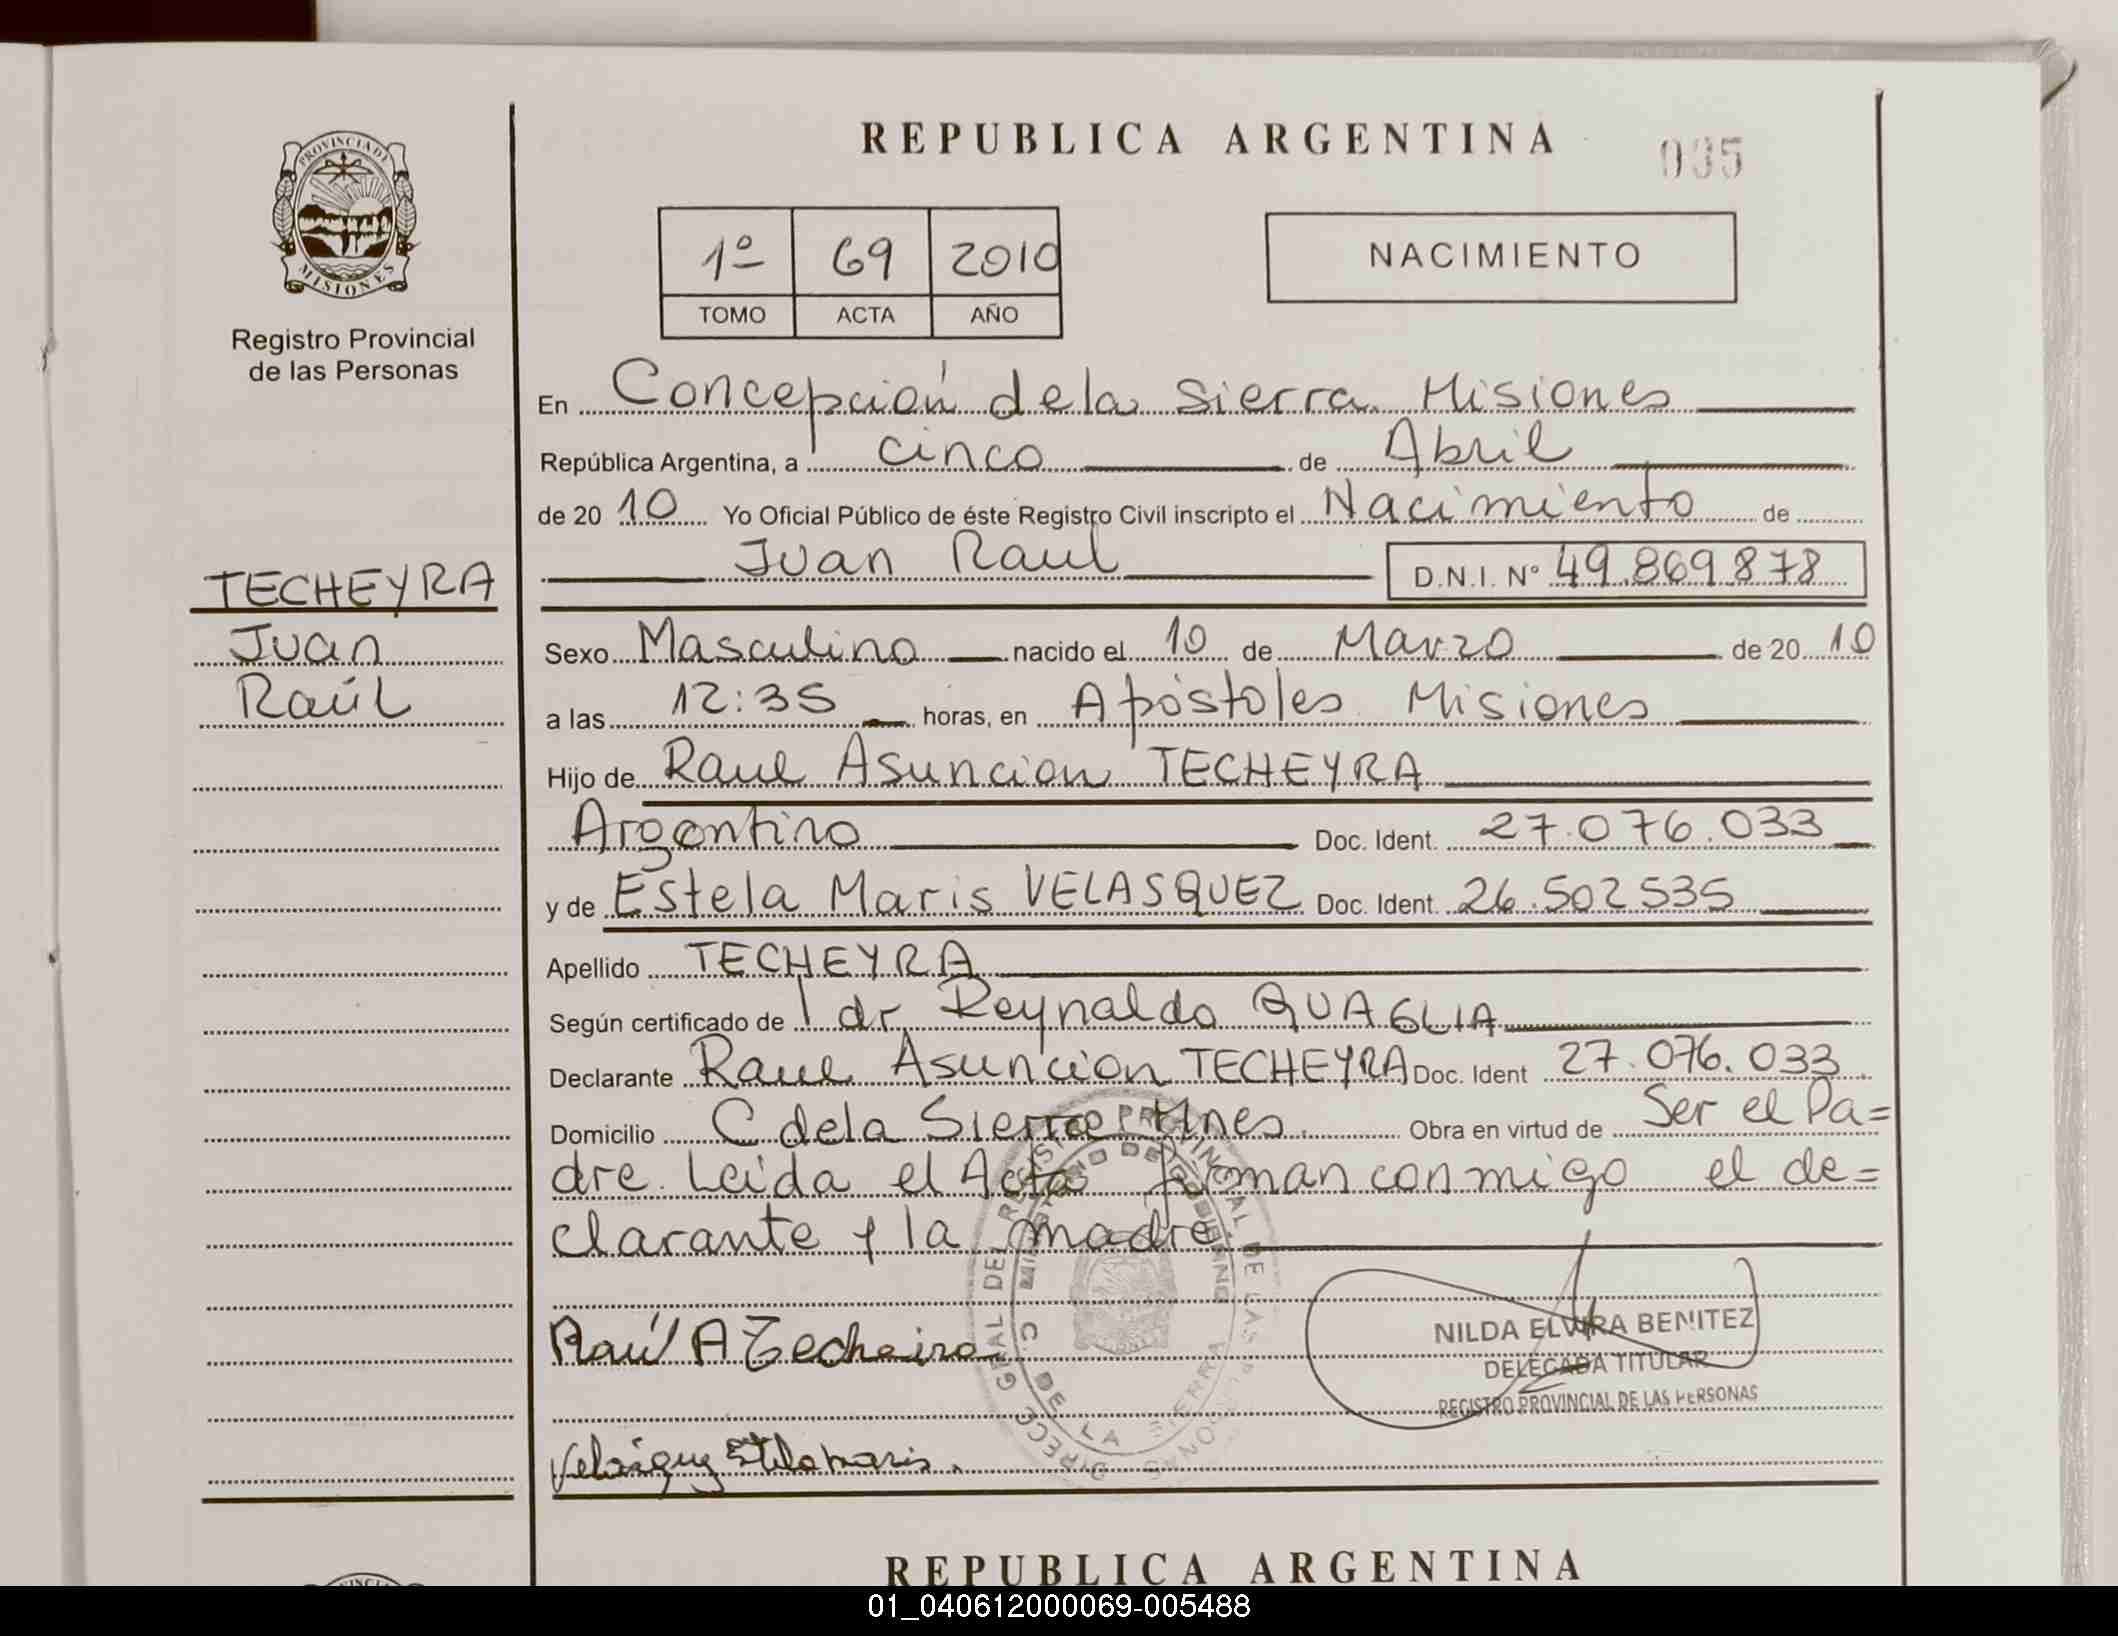 REPUBLICA ARGENTINA
035
PROVINCIA DE
MISIONES
Registro Provincial
de las Personas
1º 69 2010
TOMO ACTA AÑO
NACIMIENTO
En Concepción de la Sierra Misiones
República Argentina, a cinco de Abril
de 20 10 Yo Oficial Público de éste Registro Civil inscripto el Nacimiento de
Juan Raul D.N.I. Nº 49.869.878
TECHEYRA
Juan
Raúl
Sexo Masculino nacido el 10 de Marzo de 20 10
a las 12:35 horas, en Apóstoles Misiones
Hijo de Raul Asuncion TECHEYRA
Argentino Doc. Ident. 27.076.033
y de Estela Maris VELASQUEZ Doc. Ident. 26.502535
Apellido TECHEYRA
Según certificado de dr. Reynaldo QUAGLIA
Declarante Raul Asuncion TECHEYRA Doc. Ident 27.076.033
Domicilio C dela Sierra Mnes. Obra en virtud de Ser el Pa=
dre. Leida el Acta firman conmigo el de=
clarante y la madre
Raúl A Techeira
NILDA ELVIRA BENITEZ
DELEGADA TITULAR
REGISTRO PROVINCIAL DE LAS PERSONAS
Velasquez Estela maris.
DIRECC. GRAL DEL REGISTRO PROVINCIAL DE LAS PERSONAS
MINISTERIO DE GOBIERNO
C. DE LA SIERRA
REPUBLICA ARGENTINA
01_040612000069-005488